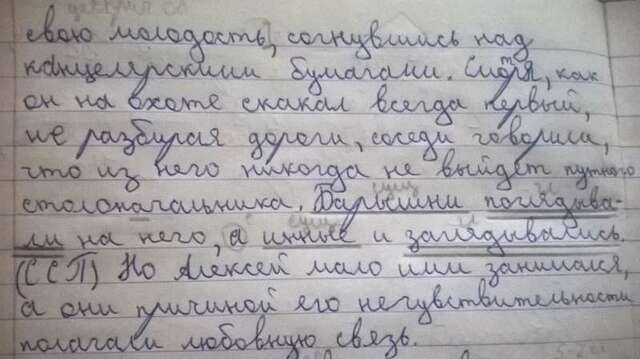 свою молодость, согнувшись над
канцелярскими бумагами. Смотря, как
он на охоте скакал всегда первый,
не разбирая дороги, соседи говорили,
что из него никогда не выйдет путного
столоначальника. Барышни поглядыва-
ли на него, а инные и заглядывались.
(ССП) Но Алексей мало ими занимался,
а они причиной его нечувствительности
полагали любовную связь.